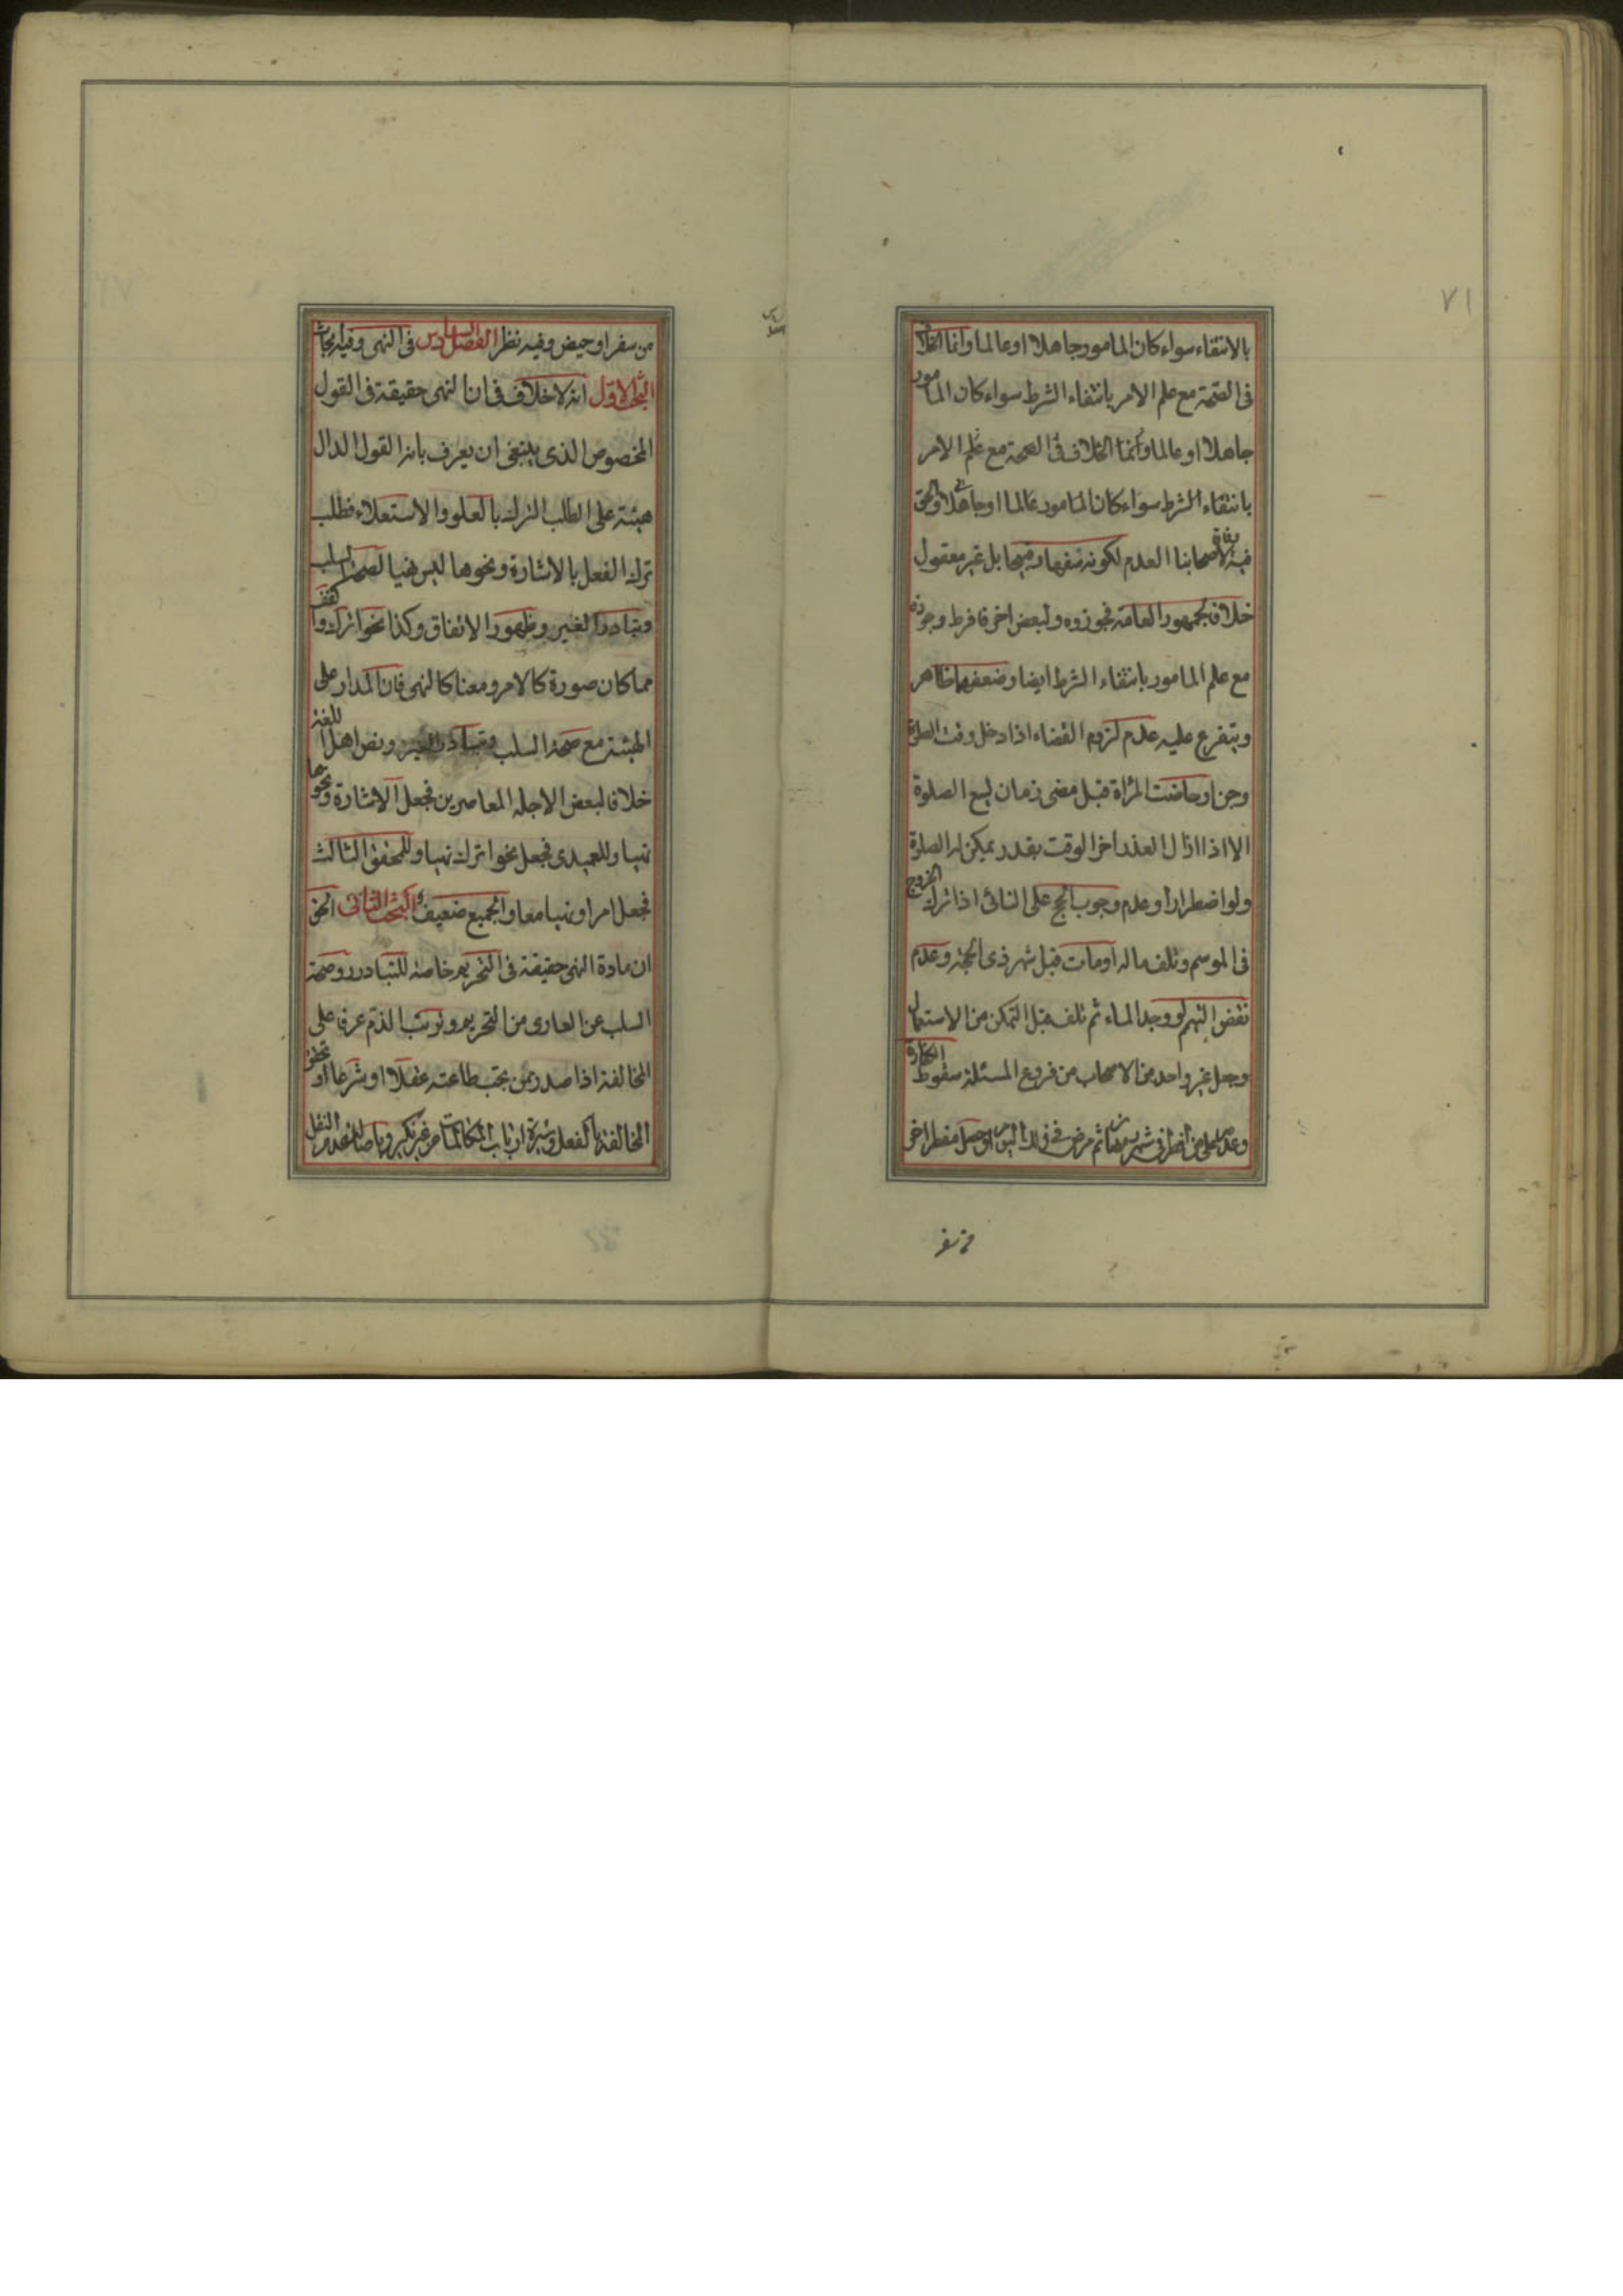 ٧١
بالانتفاء سواء كان المامور جاهلا او عالما وانما الخلاف
فى الصحة مع علم الامر بانتفاء الشرط سواء كان المامور
جاهلا او عالما وانما الخلاف فى الصحة مع علم الامر
بانتفاء الشرط سواء كان المامور عالما او جاهلا والحق
فيه وفاقا لاصحابنا العدم لكونه سفها وقبيحا بل غير معقول
خلافا لجمهور العامة فجوزوه ولبعض اخر فافرط وجوزه
مع علم المامور بانتفاء الشرط ايضا وضعفهما ظاهر
ويتفرع عليه عدم لزوم القضاء اذا دخل وقت الصلوة
وجن او حاضت المرأة قبل مضى زمان يسع الصلوة
الا اذا ازال العذر اخر الوقت بقدر يمكن له الصلوة
ولو اضطرارا وعدم وجوب الحج على النائى اذا ترك الخروج
فى الموسم وتلف ماله او مات قبل شهر ذى الحجة وعدم
نقض التيمم لو وجد الماء ثم تلف قبل التمكن من الاستعمال
وجعل غير واحد من الاصحاب من فروع المسئلة سقوط الكفارة
وعدمه على من افطر فى شهر رمضان ثم مرض فى ذلك اليوم او حصل مفطر اخر
من سفر
من سفر او حيض وفيه نظر الفصل السادس فى النهى وفيه ابحاث
البحث الاول انه لا خلاف فى ان النهى حقيقة فى القول
المخصوص الذى ينبغى ان يعرف بانه القول الدال
هيئته على الطلب الترك بالعلو والاستعلاء فطلب
ترك الفعل بالاشارة ونحوها ليس نهيا لصحة السلب
وتبادر الغير وظهور الاتفاق وكذا نحو اترك واكفف
مما كان صورة كالامر ومعنا كالنهى فان المدار على
الهيئة مع صحة السلب وتبادر الغير ونص اهل اللغة
خلافا لبعض الاجله المعاصرين فجعل الاشارة ونحوها
نهيا وللعميدى فجعل نحو اترك نهيا وللمحقق الثالث
فجعل امرا ونهيا معا والجميع ضعيف البحث الثانى الحق
ان مادة النهى حقيقة فى التحريم خاصة للتبادر وصحة
السلب عن العارى من التحريم وترتب الذم عرفا على
المخالفة اذا صدر ممن يجب طاعته عقلا او شرعا او تحقق
المخالفة بالفعل وسيرة ارباب المكالمات من غير نكير وباصالة عدم النقل